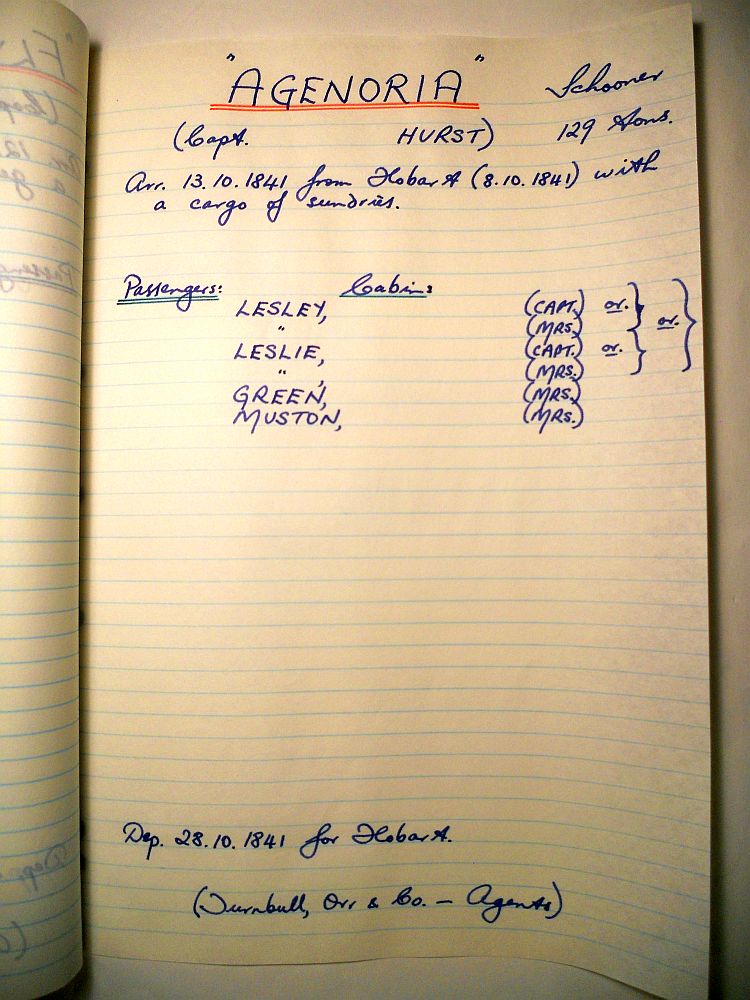 "AGENORIA" Schooner
(Capt. HURST) 129 tons.
Arr. 13.10.1841 from Hobart (8.10.1841) with
a cargo of sundries.
Passengers: Cabin:
LESLEY, (CAPT.) or.
" (MRS.) or.
LESLIE, (CAPT.) or.
" , (MRS.)
GREEN, (MRS.)
MUSTON, (MRS.)
Dep. 28.10.1841 for Hobart.
(Turnbull, Orr & Co. — Agents)